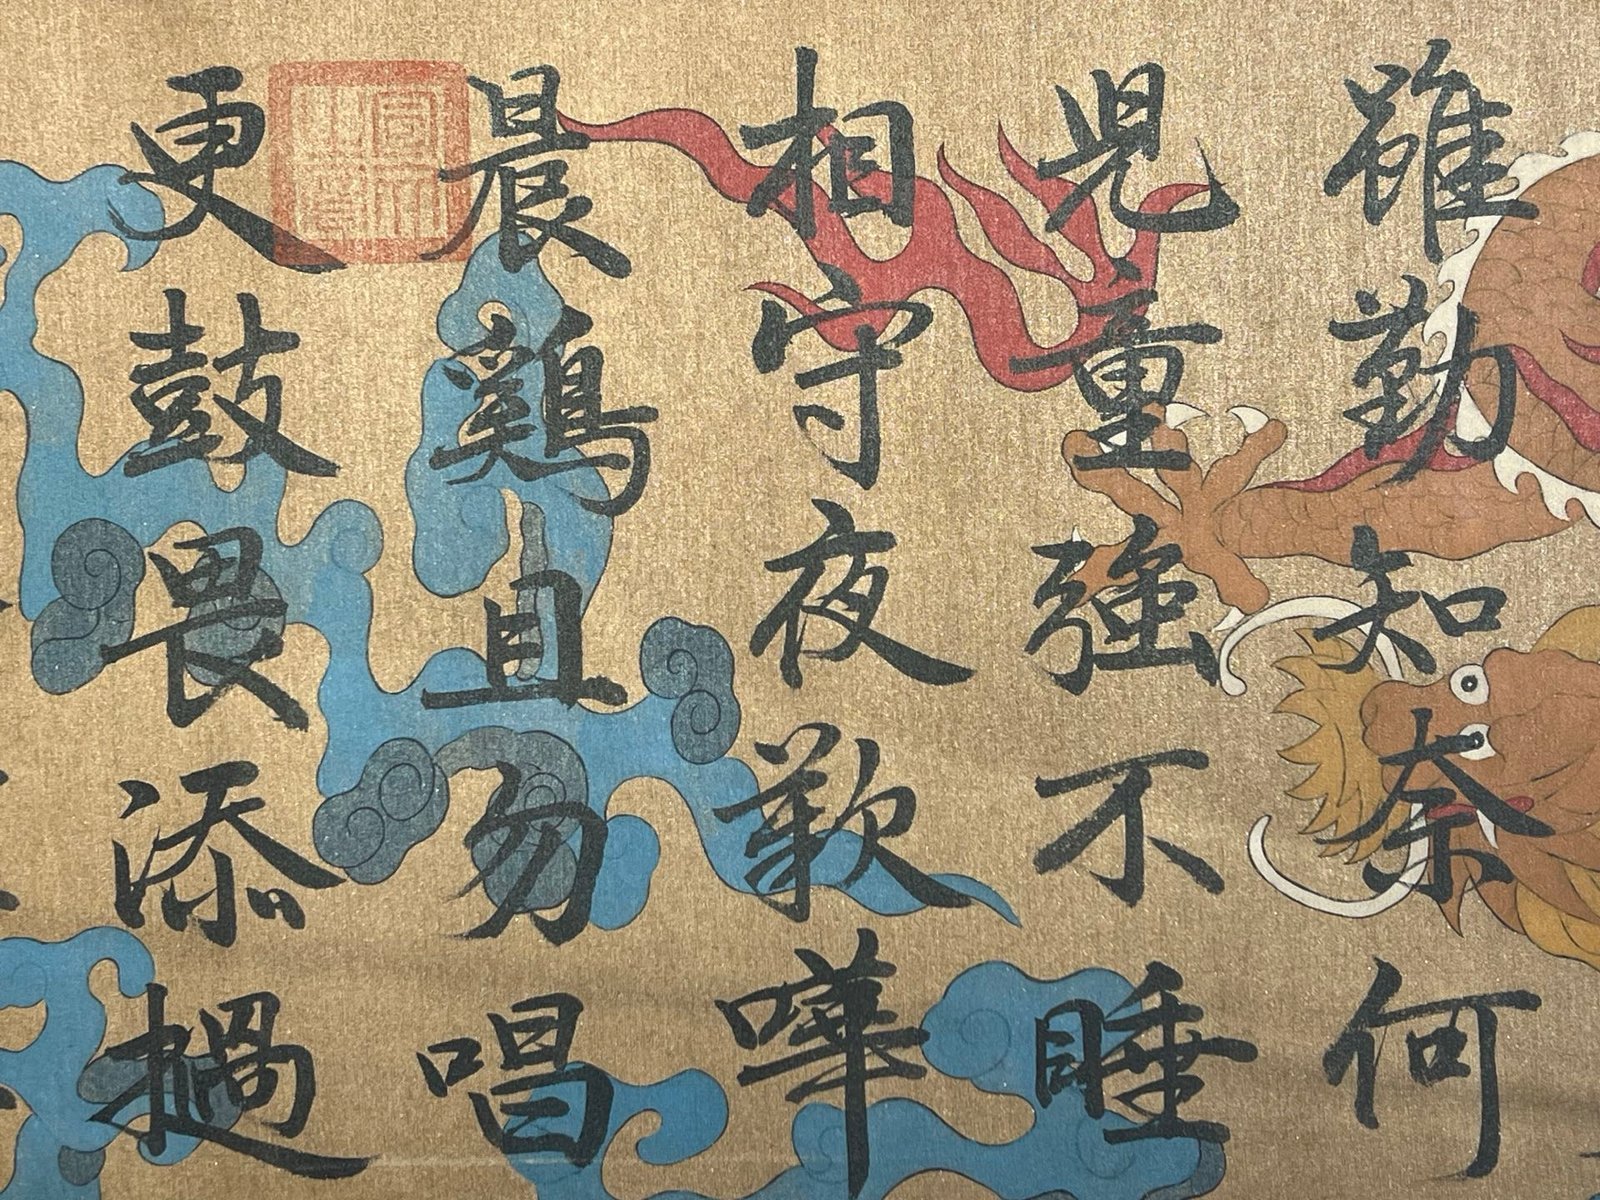 雖勤知奈何
兒童強不睡
相守夜歡嘩
晨鷄且勿唱
更鼓畏添撾